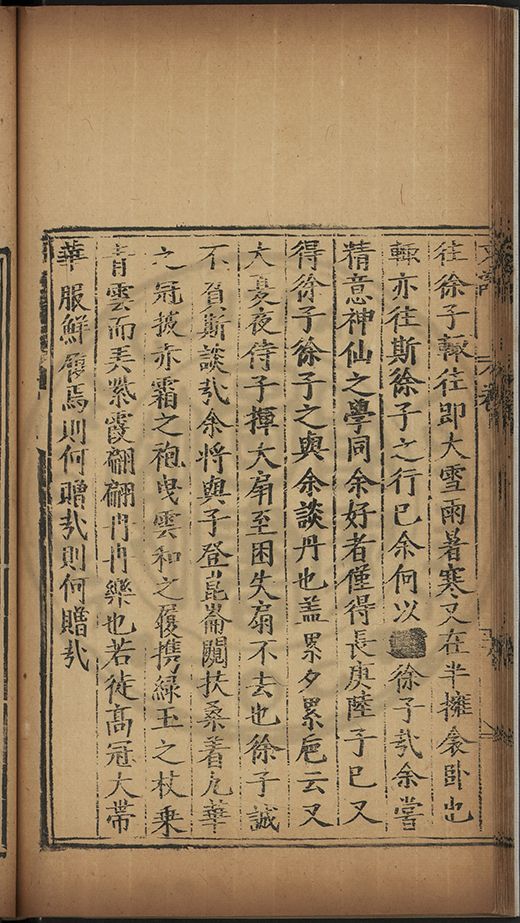 往徐子輙往即大雪雨暑寒又在半擁衾卧也
輙亦往斯徐子之行巳余何以徐子㢤余嘗
精意神仙之學同余好者僅得長庚陸子巳又
得徐子徐子之與余談丹也盖累夕累巵云又
大夏夜侍子揮大扇至困失扇不去也徐子誠
不負斯談㢤余將與子登崑崙闚扶桑着九華
之冠披赤霜之袍曳雲和之履携緑玉之杖乗
青雲而弄紫霞翩翩冉冉樂也若徒髙冠大帶
華服鮮履焉則何贈㢤則何贈㢤